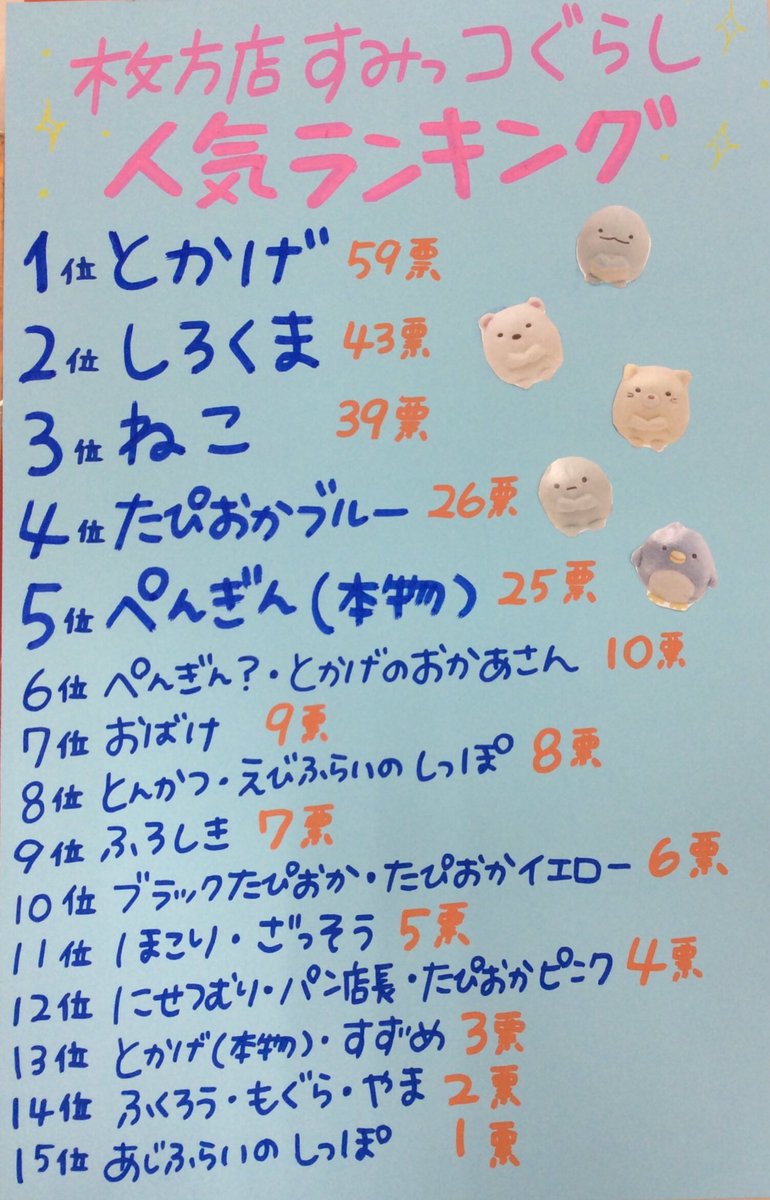 枚方店 すみっコぐらし
人気ランキング
1位 とかげ 59票
2位 しろくま 43票
3位 ねこ 39票
4位 たぴおかブルー 26票
5位 ぺんぎん(本物) 25票
6位 ぺんぎん?・とかげのおかあさん 10票
7位 おばけ 9票
8位 とんかつ・えびふらいのしっぽ 8票
9位 ふろしき 7票
10位 ブラックたぴおか・たぴおかイエロー 6票
11位 ほこり・ざっそう 5票
12位 にせつむり・パン店長・たぴおかピンク 4票
13位 とかげ(本物)・すずめ 3票
14位 ふくろう・もぐら・やま 2票
15位 あじふらいのしっぽ 1票